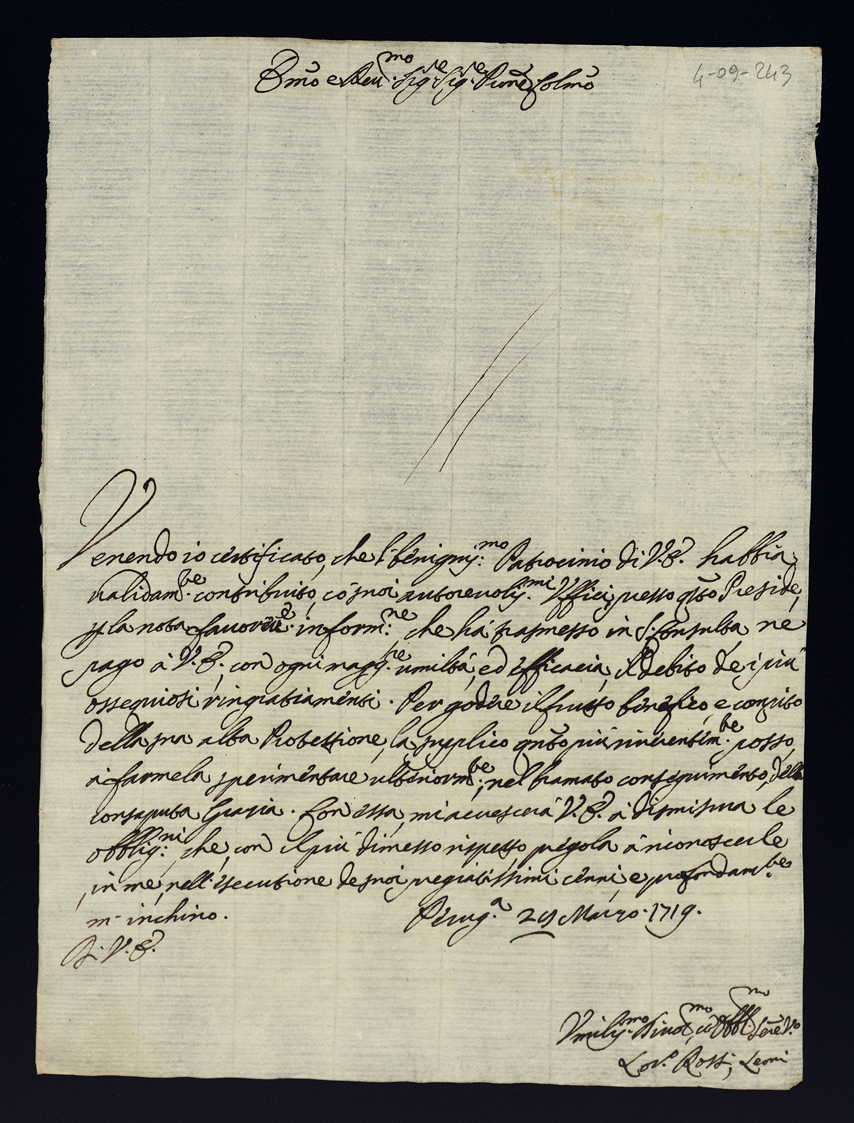 Em̃o e Reu.mo Sig.re Sig.re P̃rone Colmõ
4-09-243
Venendo io certificato, che l'benigniss.mo Patrocinio di V.E. habbia
ualidam.te contribuito, cõ suoi autoreuoliss.mi Vffici, presso q̃sto Preside,
la nota fauoreuole inform.ne che hà trasmesso in S. Consulta ne
pago à V.E., con ogni magg.re umiltà, ed efficacia, il debito de i più
ossequiosi ringratiamenti. Per godere il frutto benefico, e compito
della sua alta Protettione, la supplico q̃nto più riuerentem.te posso,
à farmela sperimentare ulteriorm.te, nel bramato conseguimento, della
consaputa Grazia. Con essa, mi accrescerà V.E. à dismisura le
obblig.ni, che, con il più dimesso rispetto, pregola à riconoscerle
in me, nell'esecutione de suoi pregiatissimi cenni, e profondam.te
m'inchino. Perug.a 29 Marzo 1719.
Di V.E.
Vmiliss.mo Diuot.mo, ed Obbl.mo Seru.e V.o
Lod.o Rossi, Leoni